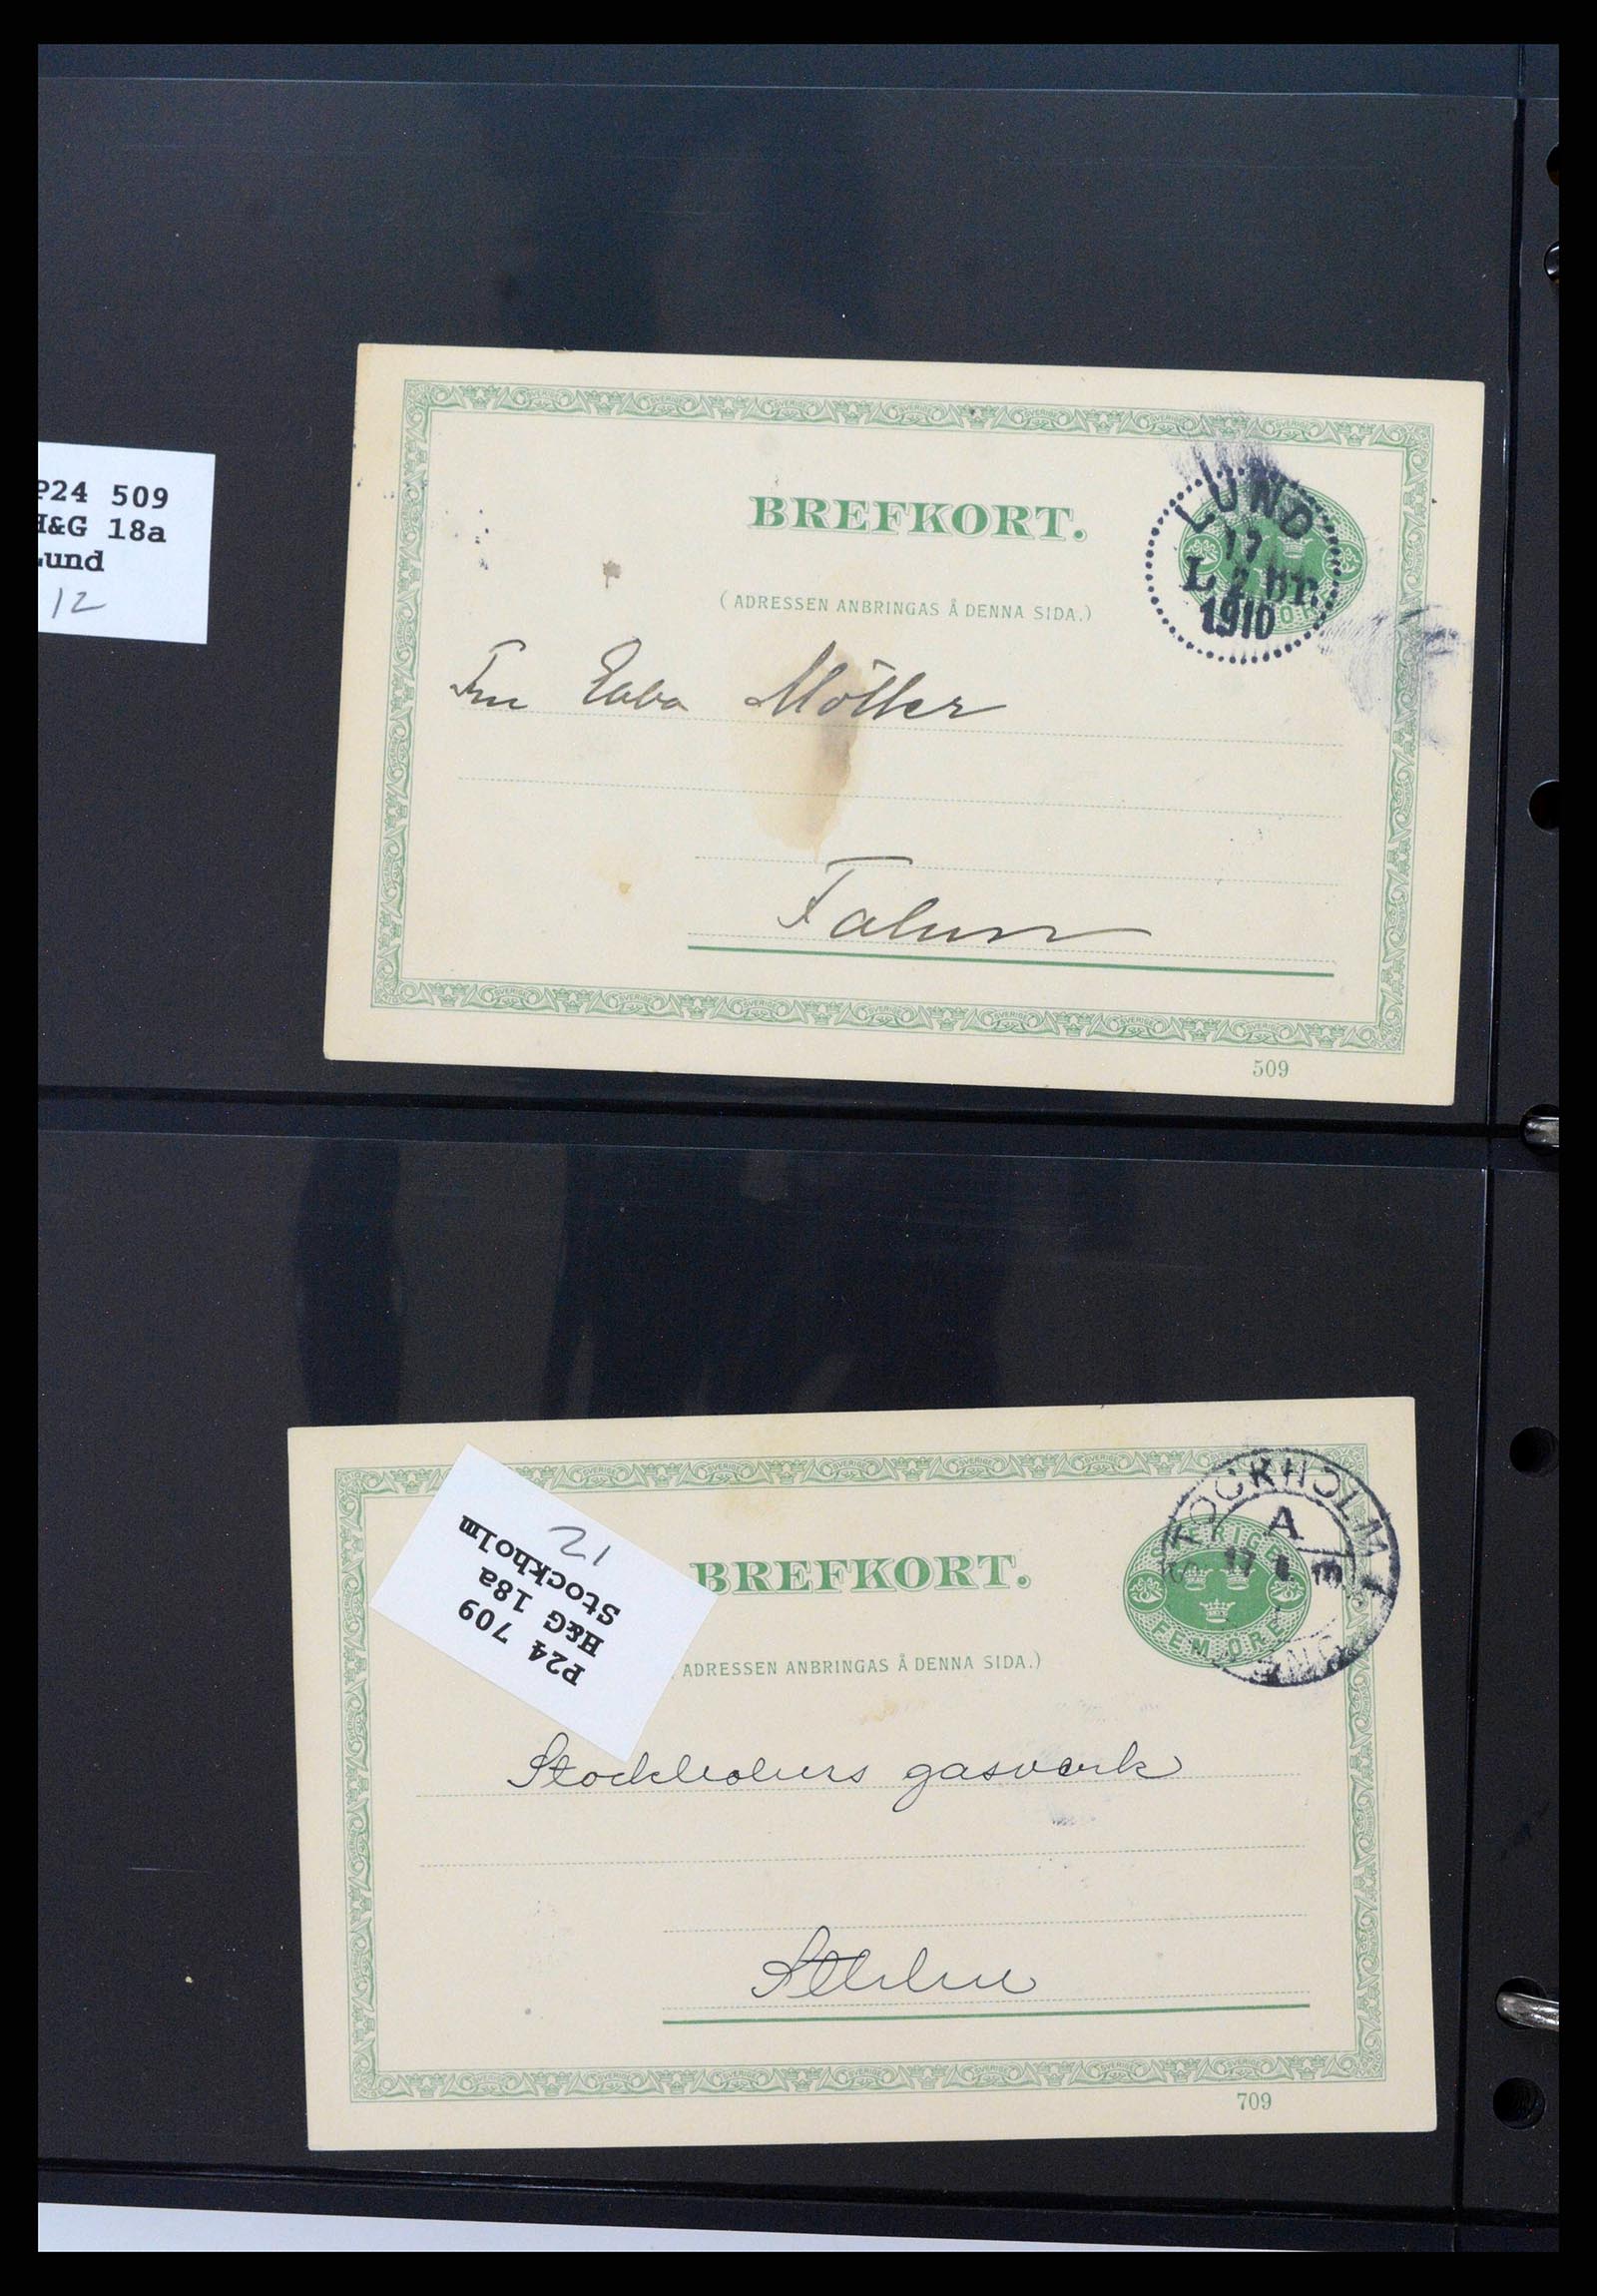 P24 509
H&G 18a
Lund
12
BREFKORT.
(ADRESSEN ANBRINGAS Å DENNA SIDA.)
LUND
17
L. 2 BT.
1910
Fru Ebba Möller
Falun
509
P24 709
H&G 18a
Stockholm
12
BREFKORT.
ADRESSEN ANBRINGAS Å DENNA SIDA.)
STOCKHOLM 1
A
17
SVERIGE
FEM ÖRE
Stockholms gasverk
Sthlm
709